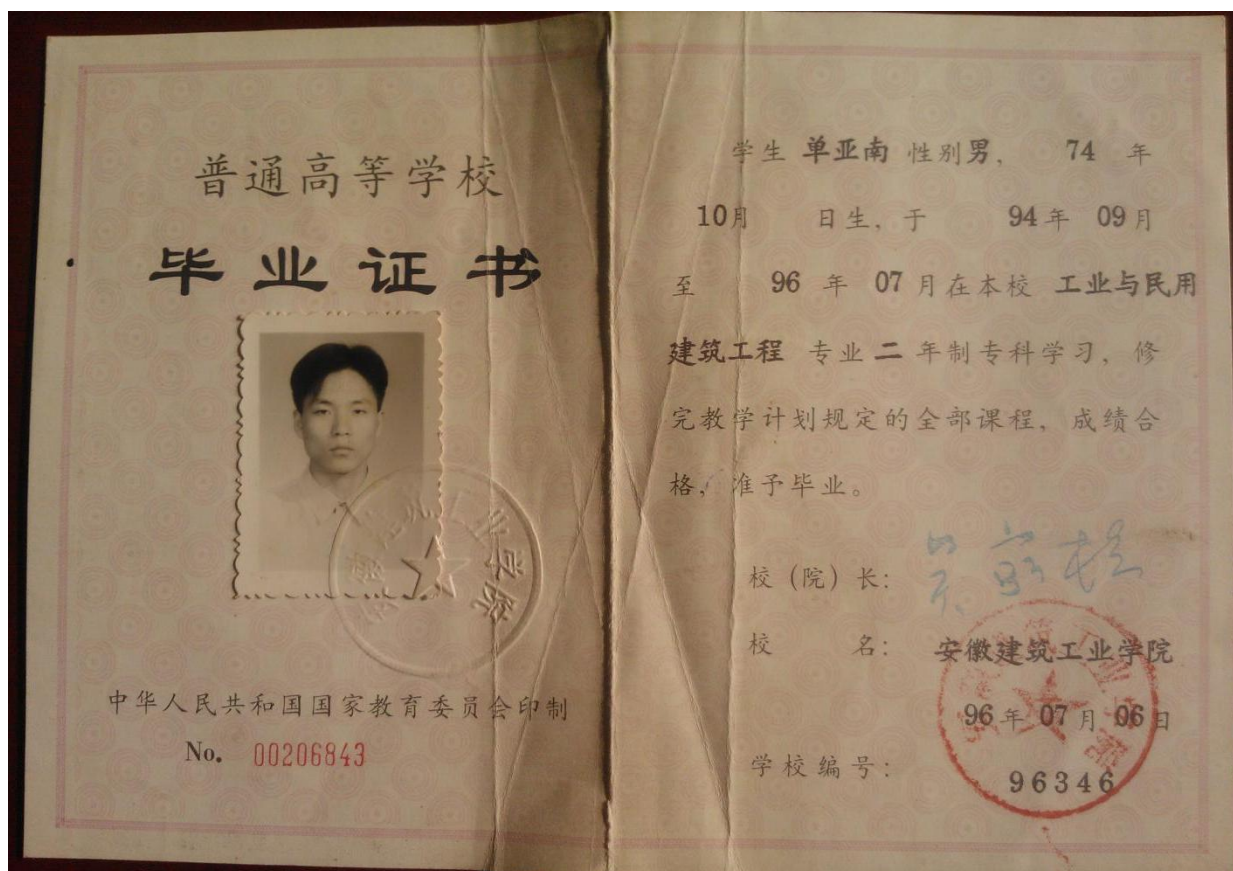 普通高等学校
毕业证书
中华人民共和国国家教育委员会印制
No. 00206843
学生 单亚南 性别男, 74 年
10月 日生, 于 94年 09月
至 96 年 07月在本校 工业与民用
建筑工程 专业 二 年制专科学习, 修
完教学计划规定的全部课程, 成绩合
格, 准予毕业。
校(院)长:
校 名: 安徽建筑工业学院
96年 07月 06日
学校编号: 96346